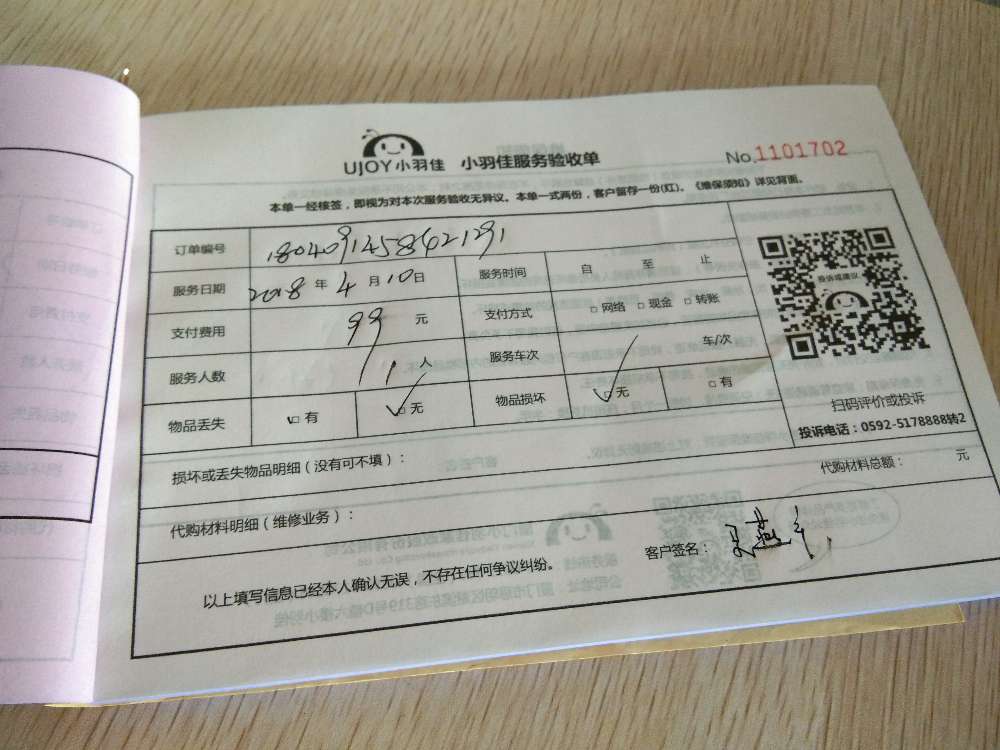 UJOY小羽佳 小羽佳服务验收单 No.1101702
本单一经核签，即视为对本次服务验收无异议。本单一式两份，客户留存一份(红)。《维保须知》详见背面。
订单编号
服务日期 2018年4月10日 服务时间 自 至 止
支付费用 99元 支付方式 □网络 □现金 □转账
服务人数 1人 服务车次 车/次
物品丢失 □有 □无 物品损坏 □无 □有
投诉或建议
扫码评价或投诉
投诉电话：0592-5178888转2
损坏或丢失物品明细（没有可不填）：
代购材料明细（维修业务）： 代购材料总额： 元
以上填写信息已经本人确认无误，不存在任何争议纠纷。 客户签名：